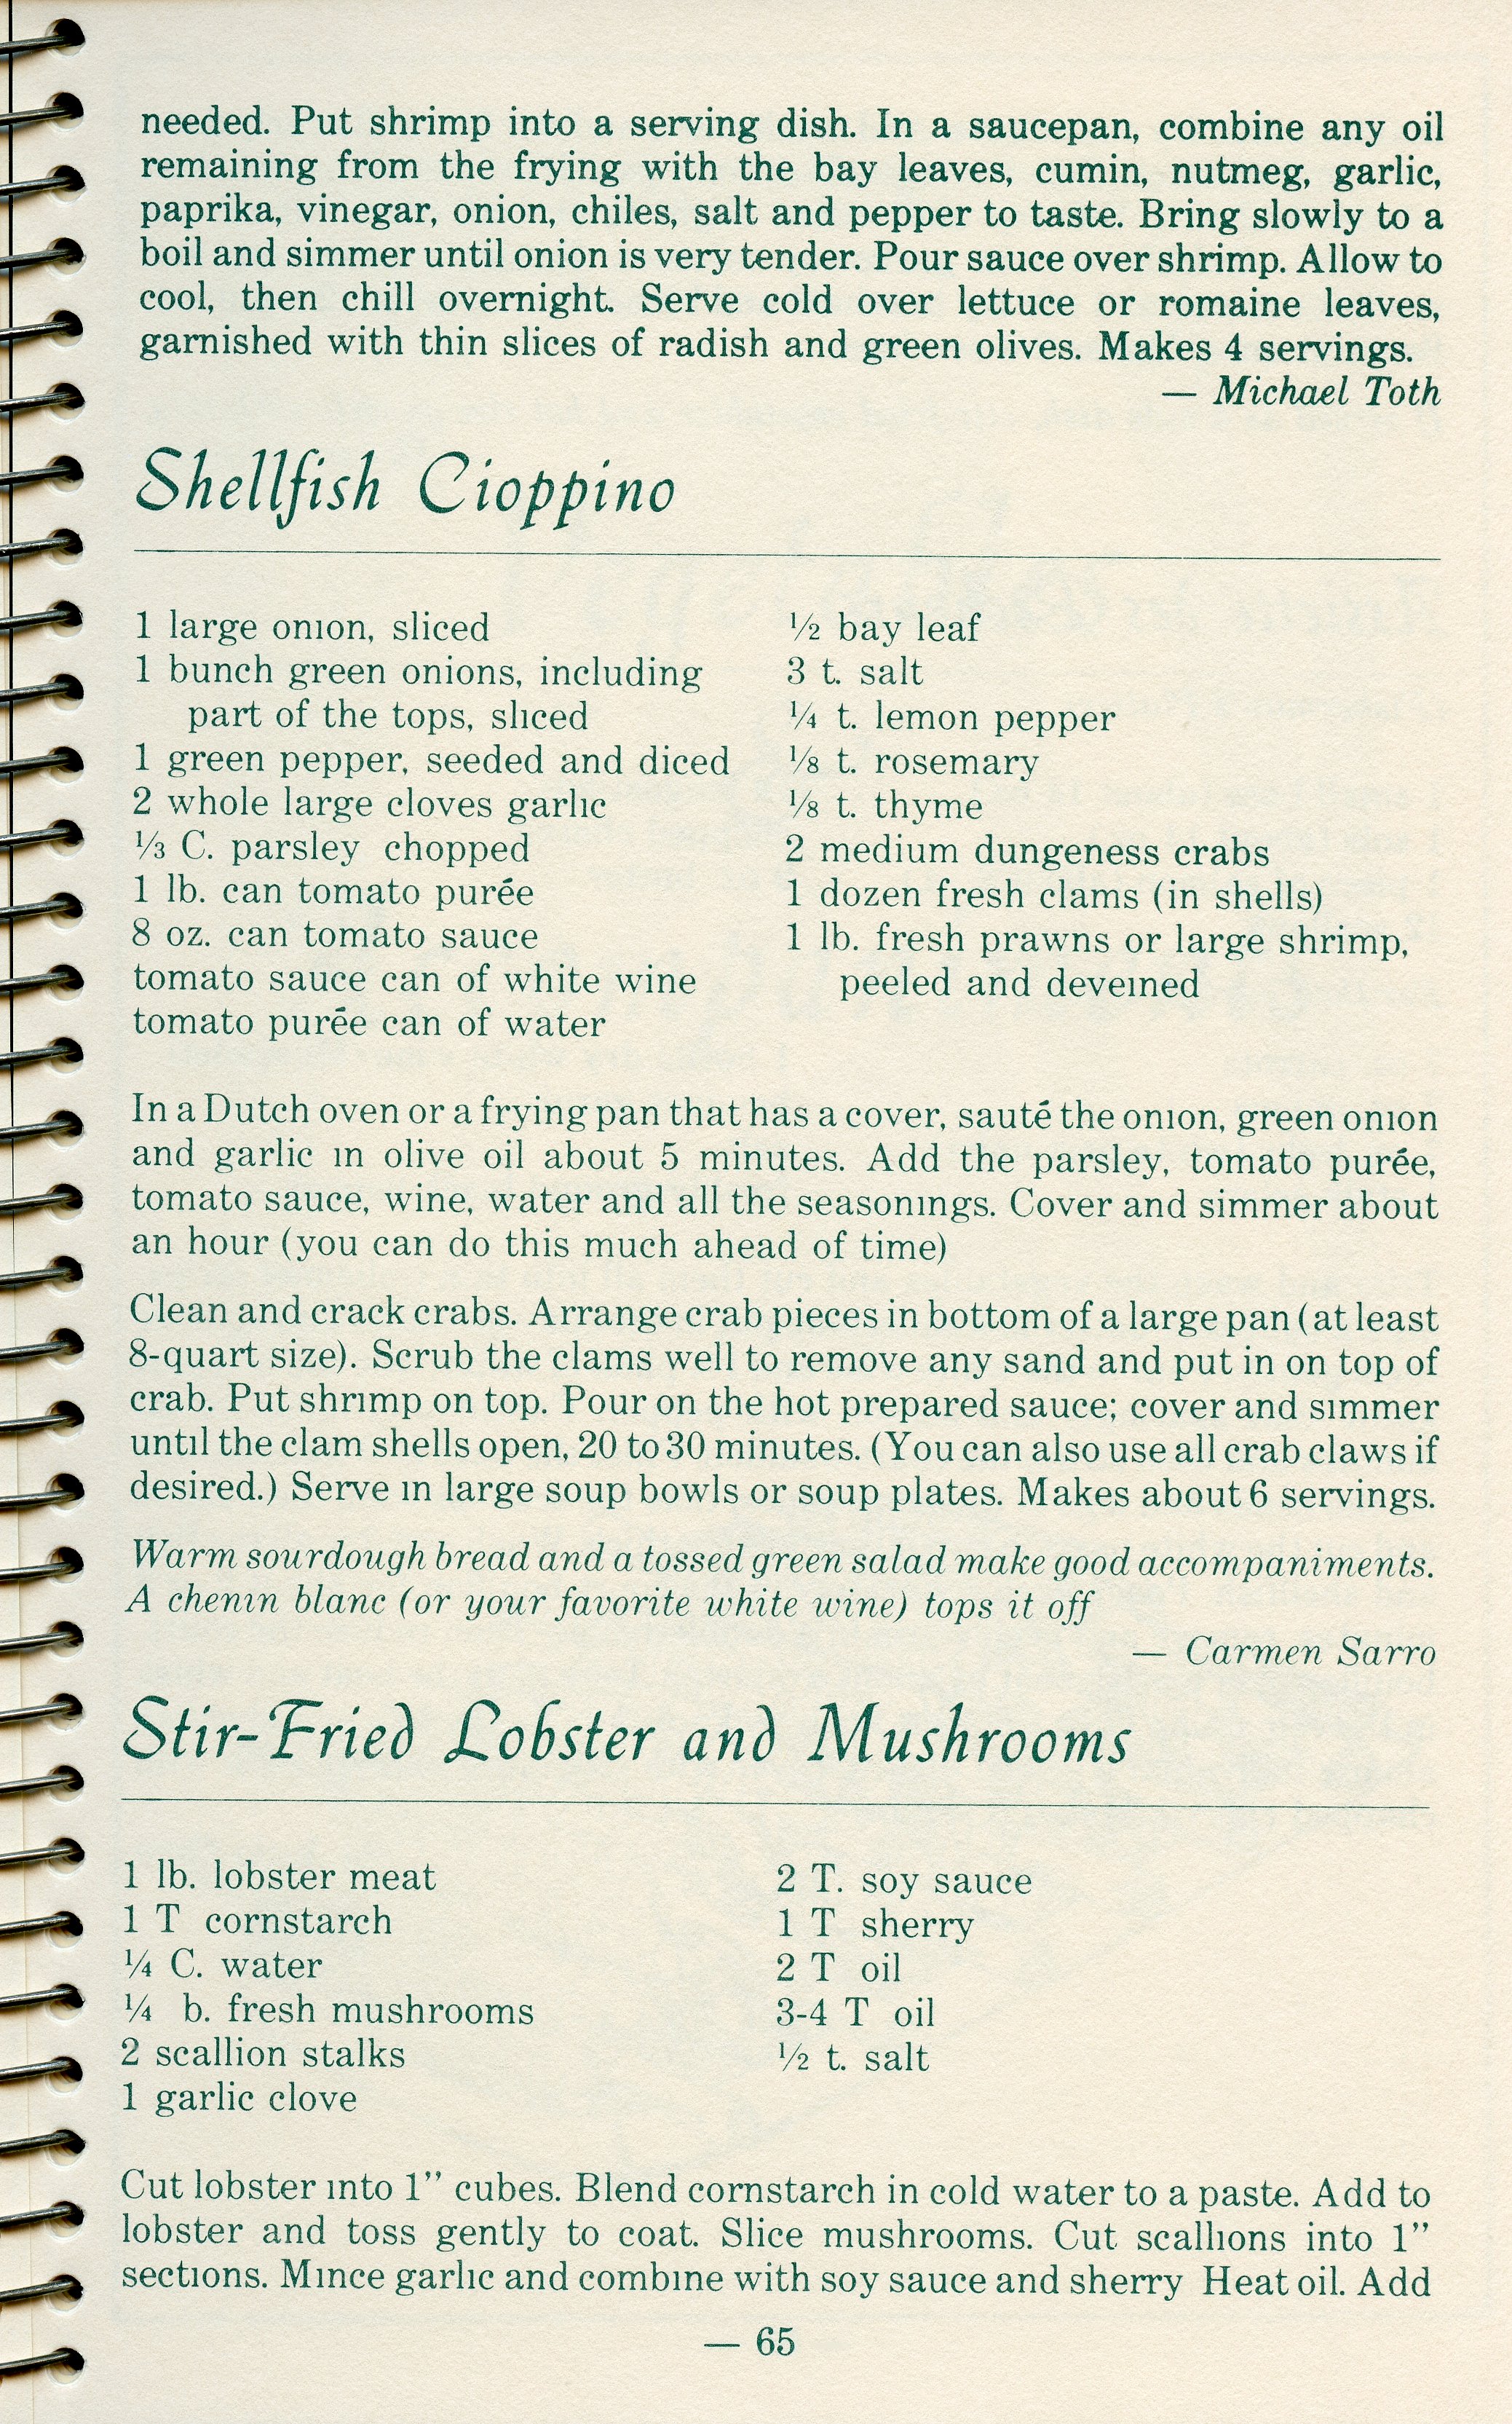 needed. Put shrimp into a serving dish. In a saucepan, combine any oil
remaining from the frying with the bay leaves, cumin, nutmeg, garlic,
paprika, vinegar, onion, chiles, salt and pepper to taste. Bring slowly to a
boil and simmer until onion is very tender. Pour sauce over shrimp. Allow to
cool, then chill overnight. Serve cold over lettuce or romaine leaves,
garnished with thin slices of radish and green olives. Makes 4 servings.
— Michael Toth
Shellfish Cioppino
1 large onion, sliced
1 bunch green onions, including
part of the tops, sliced
1 green pepper, seeded and diced
2 whole large cloves garlic
⅓ C. parsley chopped
1 lb. can tomato purée
8 oz. can tomato sauce
tomato sauce can of white wine
tomato purée can of water
½ bay leaf
3 t. salt
¼ t. lemon pepper
⅛ t. rosemary
⅛ t. thyme
2 medium dungeness crabs
1 dozen fresh clams (in shells)
1 lb. fresh prawns or large shrimp,
peeled and deveined
In a Dutch oven or a frying pan that has a cover, sauté the onion, green onion
and garlic in olive oil about 5 minutes. Add the parsley, tomato purée,
tomato sauce, wine, water and all the seasonings. Cover and simmer about
an hour (you can do this much ahead of time)
Clean and crack crabs. Arrange crab pieces in bottom of a large pan (at least
8-quart size). Scrub the clams well to remove any sand and put in on top of
crab. Put shrimp on top. Pour on the hot prepared sauce; cover and simmer
until the clam shells open, 20 to 30 minutes. (You can also use all crab claws if
desired.) Serve in large soup bowls or soup plates. Makes about 6 servings.
Warm sourdough bread and a tossed green salad make good accompaniments.
A chenin blanc (or your favorite white wine) tops it off
— Carmen Sarro
Stir-Fried Lobster and Mushrooms
1 lb. lobster meat
1 T cornstarch
¼ C. water
¼ b. fresh mushrooms
2 scallion stalks
1 garlic clove
2 T. soy sauce
1 T sherry
2 T oil
3-4 T oil
½ t. salt
Cut lobster into 1” cubes. Blend cornstarch in cold water to a paste. Add to
lobster and toss gently to coat. Slice mushrooms. Cut scallions into 1”
sections. Mince garlic and combine with soy sauce and sherry Heat oil. Add
— 65